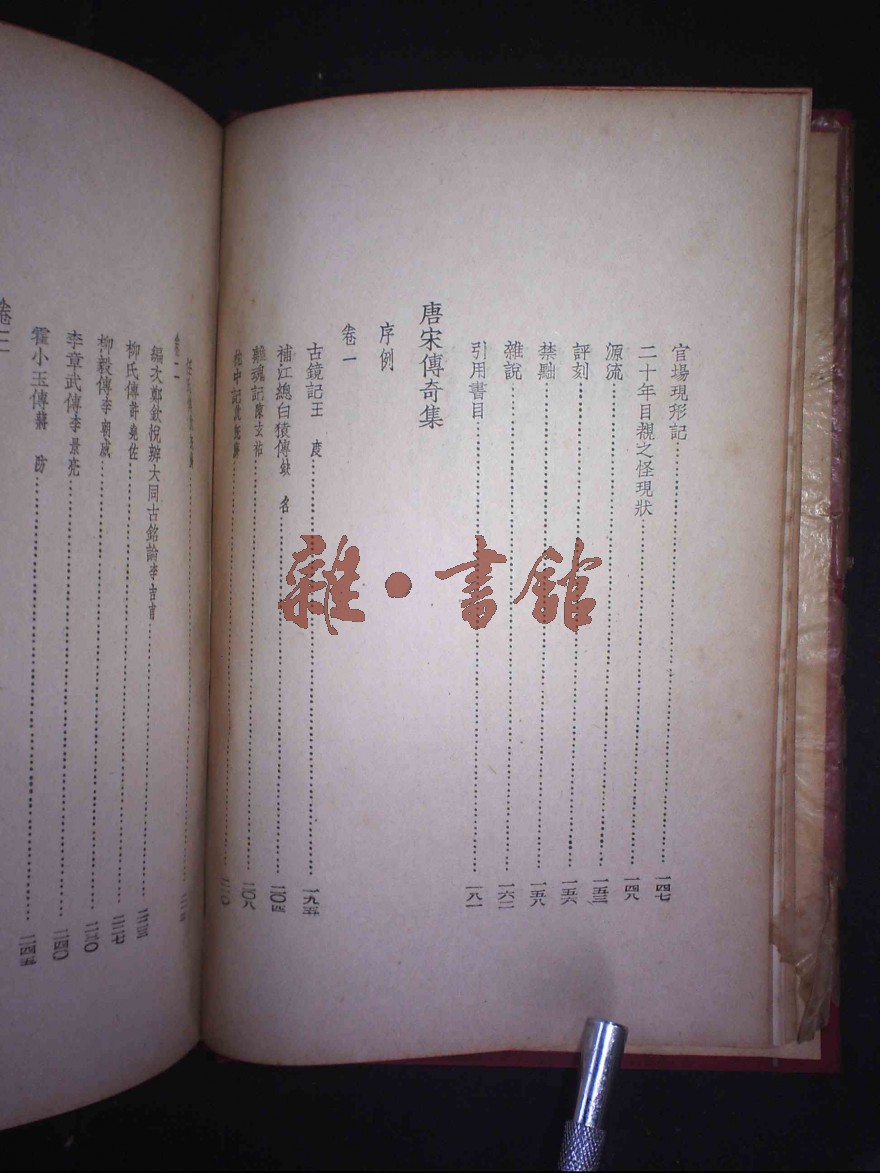 官場現形記……一四七
二十年目覩之怪現狀……一四八
源流……一五三
評刻……一五六
禁黜……一五八
雜說……一六二
引用書目……一八一
唐宋傳奇集
序例
卷一
古鏡記王 度……一九五
補江總白猿傳缺 名……二〇四
離魂記陳玄祐……二〇八
枕中記沈既濟……二一〇
卷二
編次鄭欽悅辨大同古銘論李吉甫
柳氏傳許堯佐……二二七
柳毅傳李朝威……二三〇
李章武傳李景亮……二四〇
霍小玉傳蔣 防……二四五
卷三
雜·書館